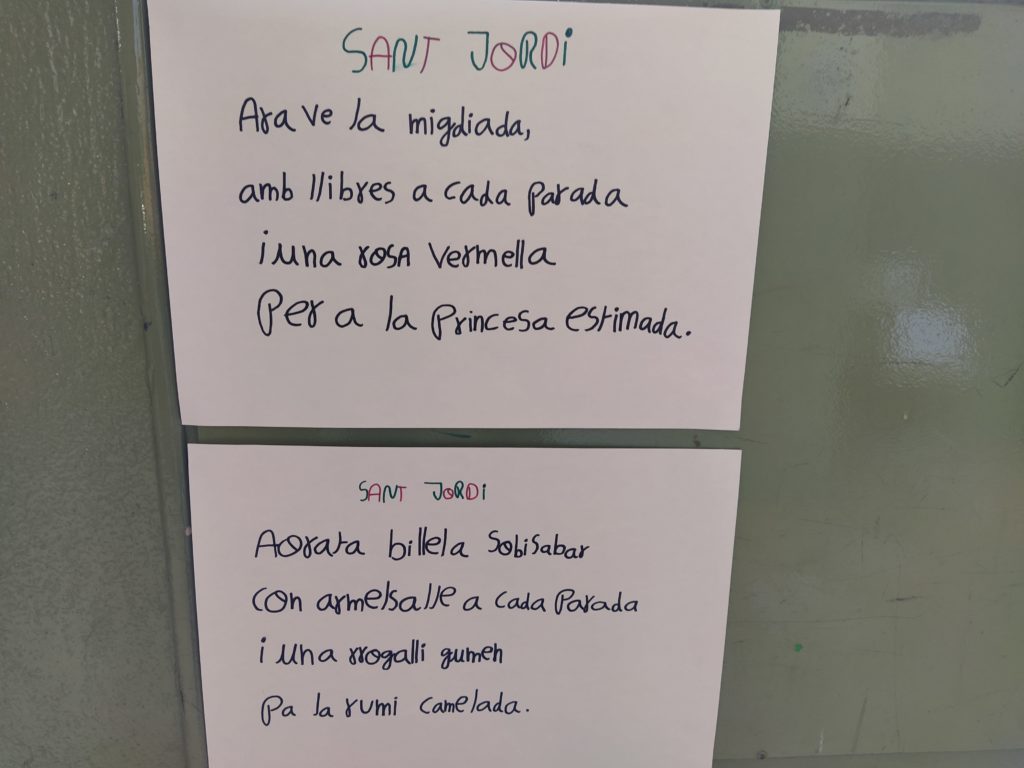 SANT JORDi
Ara ve la migdiada,
amb llibres a cada parada
i una rosa vermella
Per a la princesa estimada.
SANT JORDi
Aorata billela sobisabar
con armelsalle a cada Parada
i una rrogalli gumeh
pa la rumi camelada.